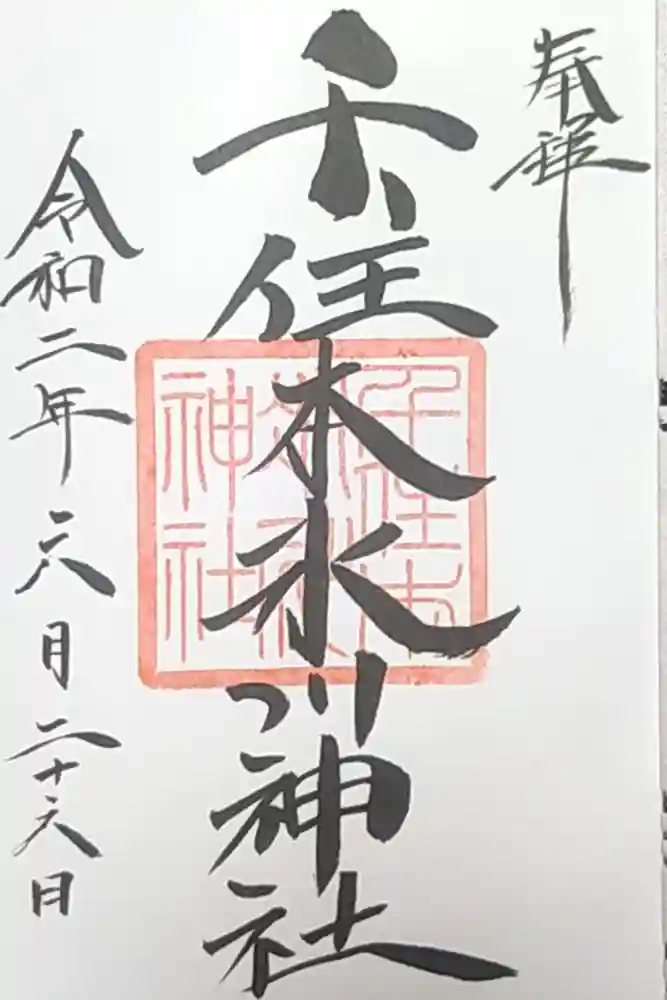 奉拝
千住本氷川神社
令和二年六月二十六日
千住本
神社